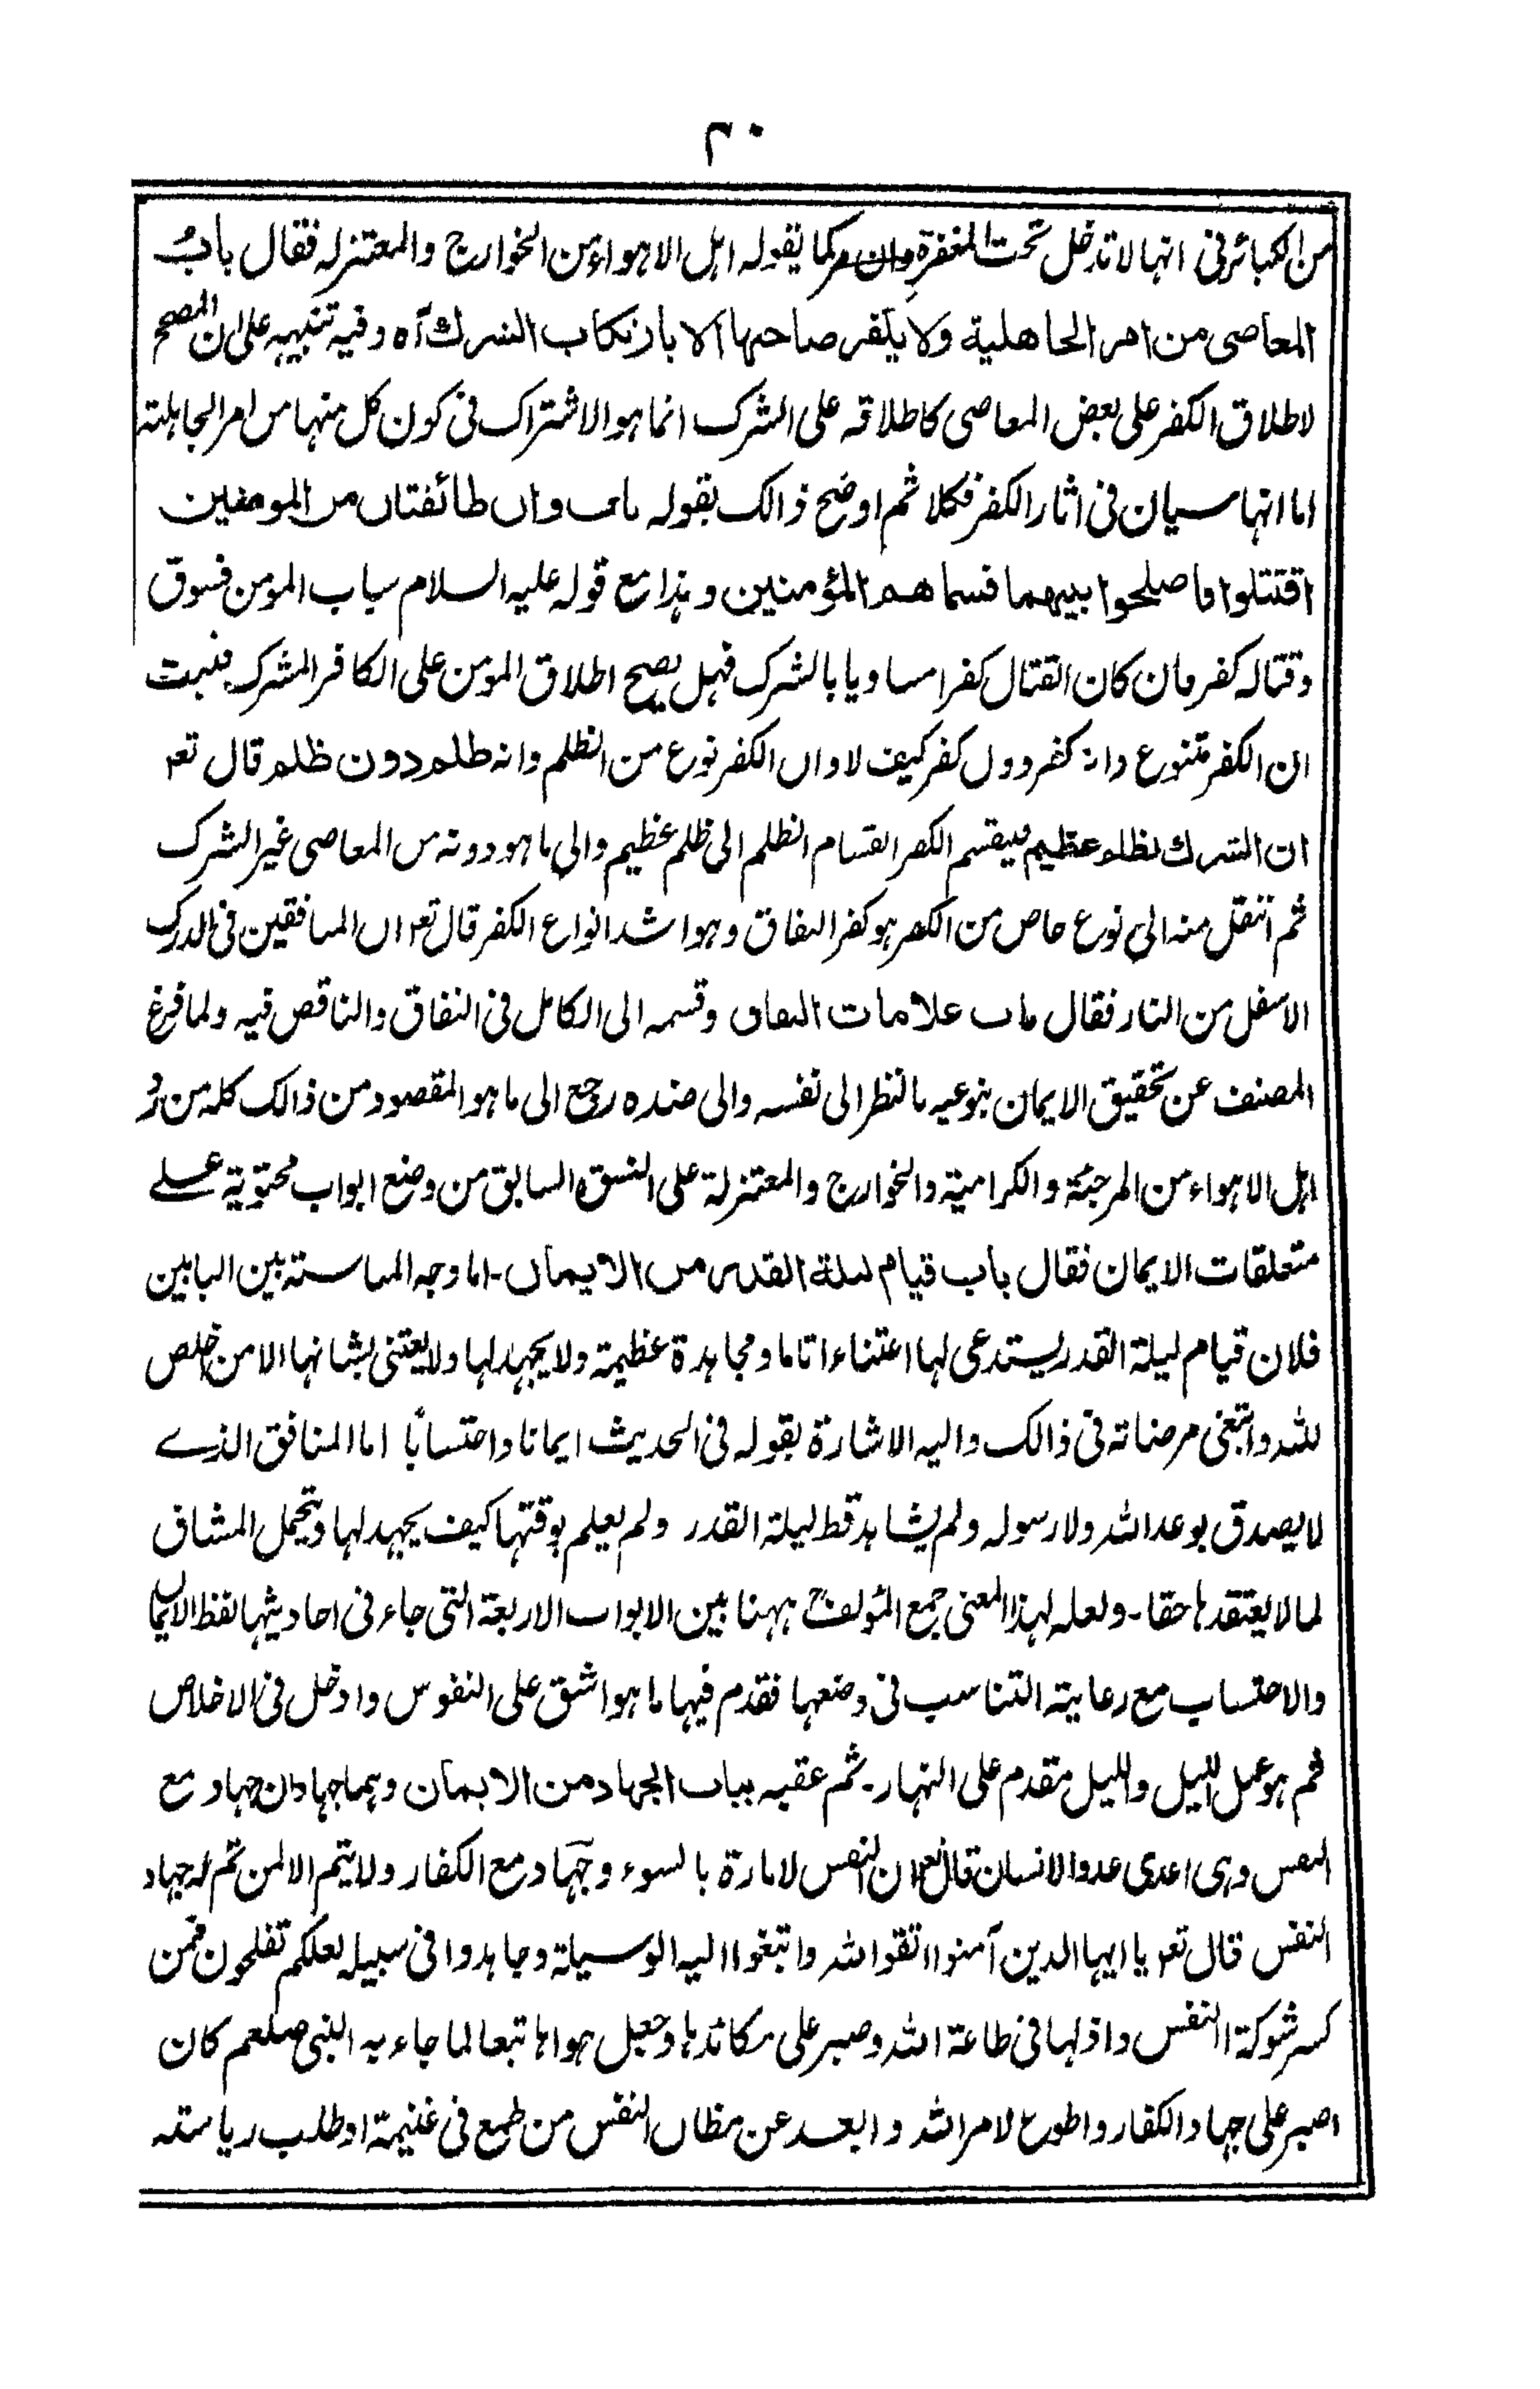 ٢٠
من الكبائر فى انها لا تدخل تحت المغفرة كما يقوله اہل الاہواء من الخوارج والمعتزلہ فقال بابُ
المعاصى من امر الجاهلية ولا يكفر صاحبها الا بارتكاب الشرك آہ وفيہ تنبيہہ على ان المصحح
لاطلاق الكفر على بعض المعاصى كاطلاقہ على الشرك انما ہو الاشتراك فى كون كل منہا من امر الجاہليۃ
اما انہا سيان فى اثار الكفر فكلا ثم اوضح ذالك بقولہ باب وان طائفتان من المومنين
اقتتلوا فاصلحوا بينهما فسماهم المؤمنين وہذا مع قولہ عليہ السلام سباب المومن فسوق
وقتالہ كفر فان كان القتال كفرا مساويا بالشرك فہل يصح اطلاق المؤمن على الكافر المشرك فثبت
ان الكفر متنوع وانہ كفر دون كفر كيف لا وان الكفر نوع من الظلم وانہ ظلم دون ظلم قال تعہ
ان الشرك لظلم عظيم فينقسم الكفر انقسام الظلم الى ظلم عظيم والى ما ہو دونہ من المعاصى غير الشرك
ثم انتقل منہ الى نوع خاص من الكفر ہو كفر النفاق وہو اشد انواع الكفر قال تعہ ان المنافقين فى الدرك
الاسفل من النار فقال باب علامات النفاق وقسمہ الى الكامل فى النفاق والناقص فيہ ولما فرغ
المصنف عن تحقيق الايمان بنوعيہ بالنظر الى نفسہ والى ضدہ رجع الى ما ہو المقصود من ذالك كلہ من رد
اہل الاہواء من المرجئۃ والكراميۃ والخوارج والمعتزلۃ على النسق السابق من وضع ابواب محتويۃ علے
متعلقات الايمان فقال باب قيام ليلة القدر من الايمان۔ اما وجہ المناسبۃ بين البابين
فلان قيام ليلۃ القدر يستدعى لہا اعتناءا تاما ومجاہدۃ عظيمۃ ولا يجہد لہا ولا يعتنى بشانہا الا من اخلص
للہ وابتغى مرضاتہ فى ذالك واليہ الاشارۃ بقولہ فى الحديث ايمانا واحتسابًا اما المنافق الذے
لا يصدق بوعد اللہ ولا رسولہ ولم يشاہد قط ليلۃ القدر ولم يعلم بوقتہا كيف يجہد لہا ويتحمل المشاق
لما لا يعتقدہا حقا۔ ولعلہ لہذا المعنى جمع المؤلفؒ ہہنا بين الابواب الاربعۃ التى جاء فى احاديثہا لفظ الايمان
والاحتساب مع رعايۃ التناسب فى وضعہا فقدم فيہا ما ہو اشق على النفوس وادخل فى الاخلاص
ثم ہو عمل الليل والليل مقدم على النہار۔ ثم عقبہ بباب الجهاد من الايمان وہما جہادان جہاد مع
النفس وہى اعدى عدو الانسان قال تعہ ان النفس لامارۃ بالسوء وجہاد مع الكفار ولا يتم الا لمن تم لہ جہاد
النفس قال تعہ يا ايہا الذين آمنوا اتقوا اللہ وابتغوا اليہ الوسيلۃ وجاہدوا فى سبيلہ لعلكم تفلحون فمن
كسر شوكۃ النفس واذلہا فى طاعۃ اللہ وصبر على مكائدہا وجعل ہواہا تبعا لما جاء بہ النبى صلعم كان
اصبر على جہاد الكفار واطوع لامر اللہ وابعد عن مظان النفس من طمع فى غنيمۃ او طلب رياستہ